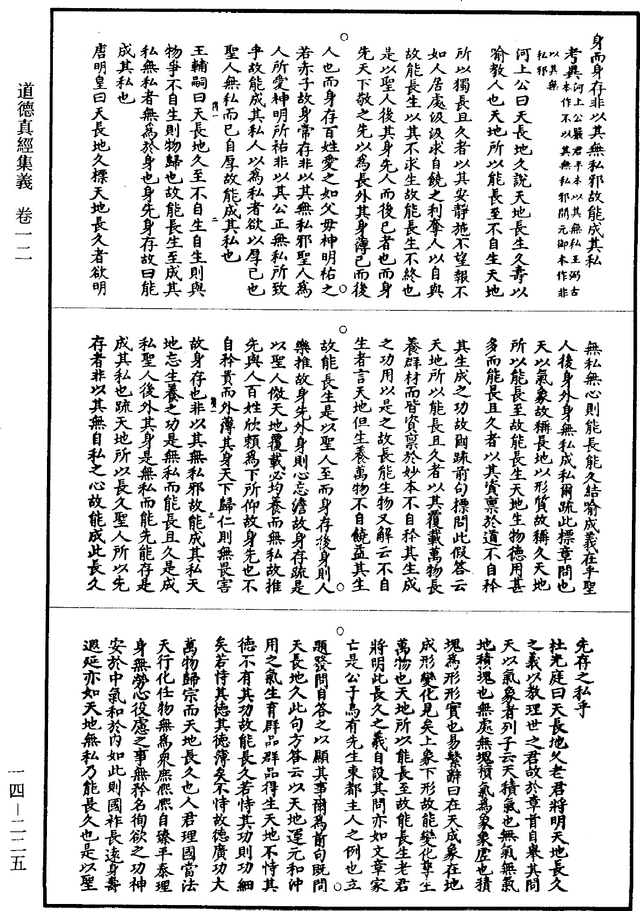 道德真經集義 卷一二
一四—二二五
身而身存非以其無私邪故能成其私
考異河上公嚴君平本以其無私王弼古
本作不以其無私邪開元御本作非
以其無
私邪
河上公曰天長地久說天地長生久壽以
喻教人也天地所以能長至不自生天地
所以獨長且久者以其安靜施不望報不
如人居處汲汲求自饒之利奪人以自與
故能長生以其不求生故能長生不終也
是以聖人後其身先人而後已者也而身
先天下敬之先以為長外其身薄已而後
人也而身存百姓愛之如父母神明祐之
若赤子故身常存非以其無私邪聖人為
人所愛神明所祐非以其公正無私所致
乎故能成其私人以為私者欲以厚已也
聖人無私而已自厚故能成其私也
王輔嗣曰天長地久至不自生自生則與
物爭不自生則物歸也故能長生至成其
私無私者無為於身也身先身存故曰能
成其私也
唐明皇曰天長地久標天地長久者欲明
無私無心則能長能久結喻成義在乎聖
人後身外身無私成私爾疏此標章問也
天以氣象故稱長地以形質故稱久天地
所以能長至故能長生天地生物德用甚
多而能長且久者以其資稟於道不自矜
其生成之功故爾疏前句標問此假答云
天地所以能長且久者以其覆載萬物長
養群材而皆資稟於妙本不自矜其生成
之功用以是之故長能生物又解云不自
生者言天地但生養萬物不自饒益其生
故能長生是以聖人至而身存後身則人
樂推故身先外身則心忘澹故身存疏是
以聖人傚天地覆載必均養而無私故推
先與人百姓欣賴為下所仰故身先也不
自矜貴而外薄其身天下歸仁則無畏害
故身存也非以其無私邪故能成其私天
地忘生養之功是無私而能長且久是成
私聖人後外其身是無私而能先能存是
成其私也疏天地所以長久聖人所以先
存者非以其無自私之心故能成此長久
先存之私乎
杜光庭曰天長地久老君將明天地長久
之義以教理世之君故於章首自舉其問
天以氣象者列子云天積氣也無氣無氣
地積塊也無處無塊積氣為象象虛也積
塊為形形實也易繫辭曰在天成象在地
成形變化見矣上象下形故能變化孳生
萬物也天地所以能長至故能長生老君
將明此長久之義自設其問亦如文章家
亡是公子烏有先生東都主人之例也立
題發問自答之以顯其事爾為前句既問
天長地久此句方答云以天地運元和沖
用之氣生育群品群品得生天地不恃其
德不有其功故能長久若恃其功則功細
矣若恃其德其德薄矣不恃故德廣功大
萬物歸宗而天地長久也人君理國當法
天行化任物無為衆庶熙熙自臻平泰理
身無勞心役慮之事無矜名徇欲之功神
安於中氣和於內如此則國祚長遠身壽
遐延亦如天地無私乃能長久也是以聖